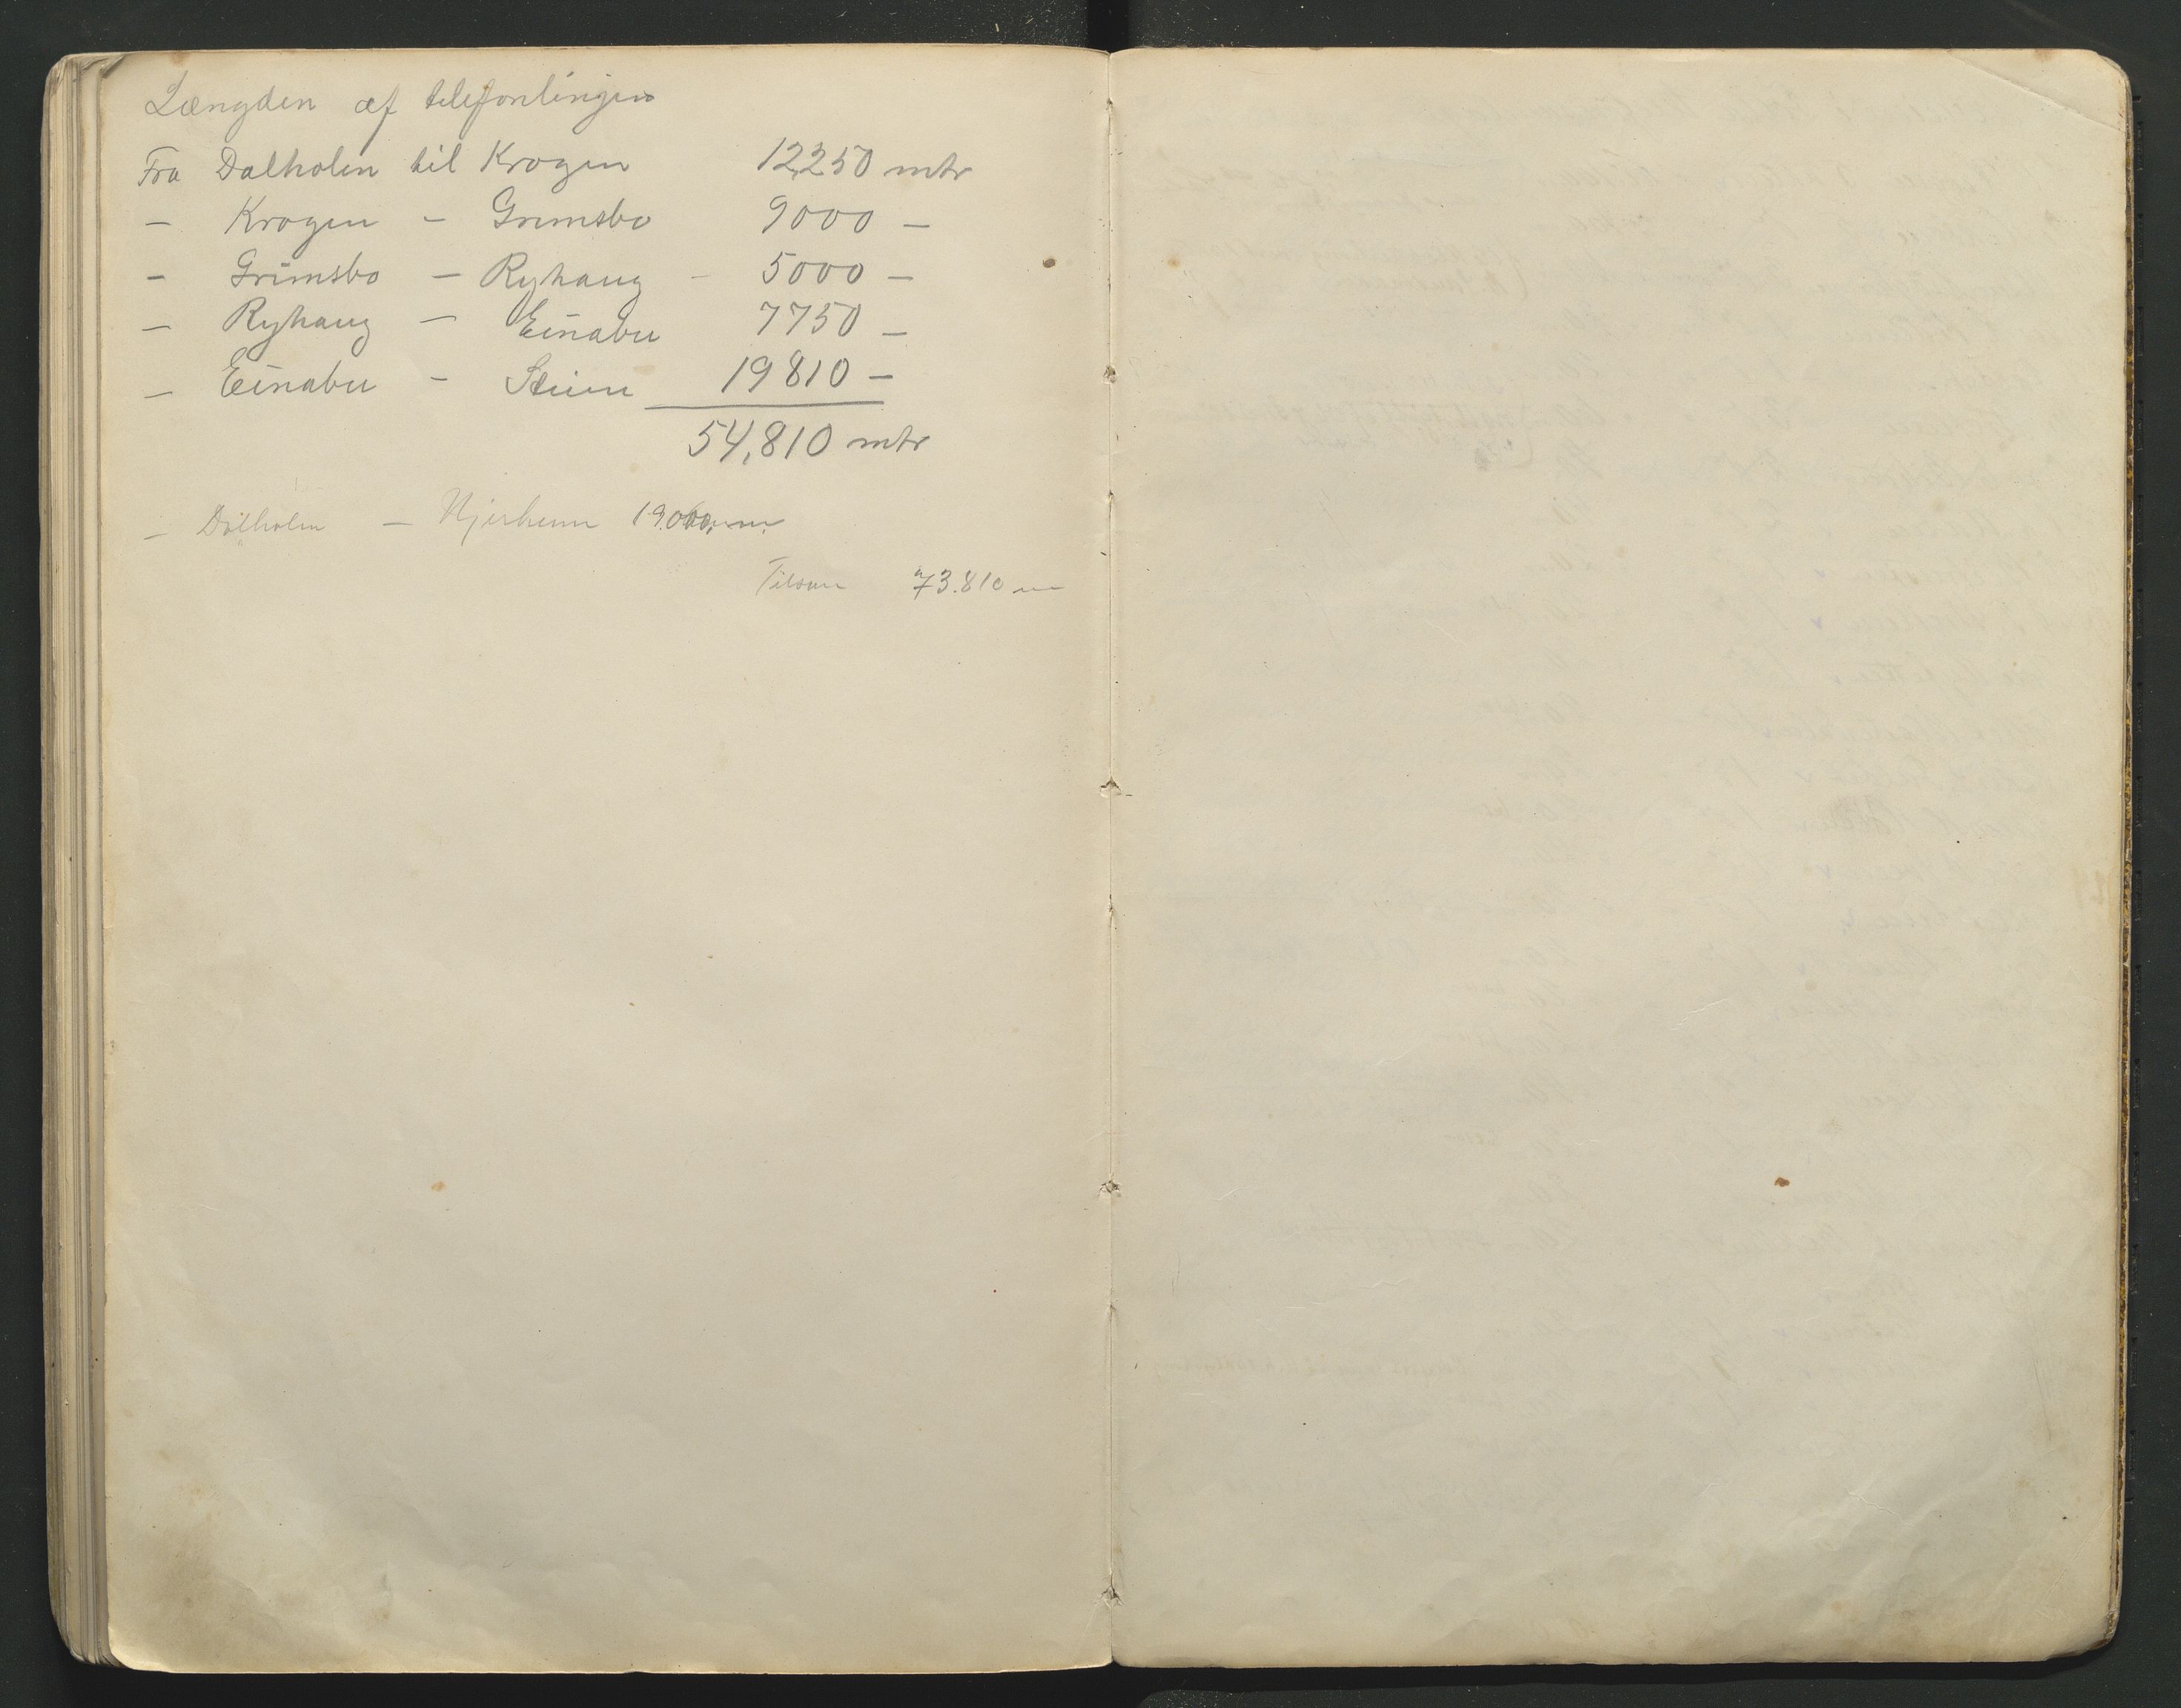 Længden af telefonlinjen
Fra Dalholen til Krogen 12,250 mtr
— Krogen — Grimsbo 9000 —
— Grimsbo — Ryhaug — 5000 —
— Ryhaug — Einabu 7750 —
— Einabu — Steien 19810 —
54,810 mtr
— Dalholen — Hjerkinn 19.000 m
Tilsam 73.810 m